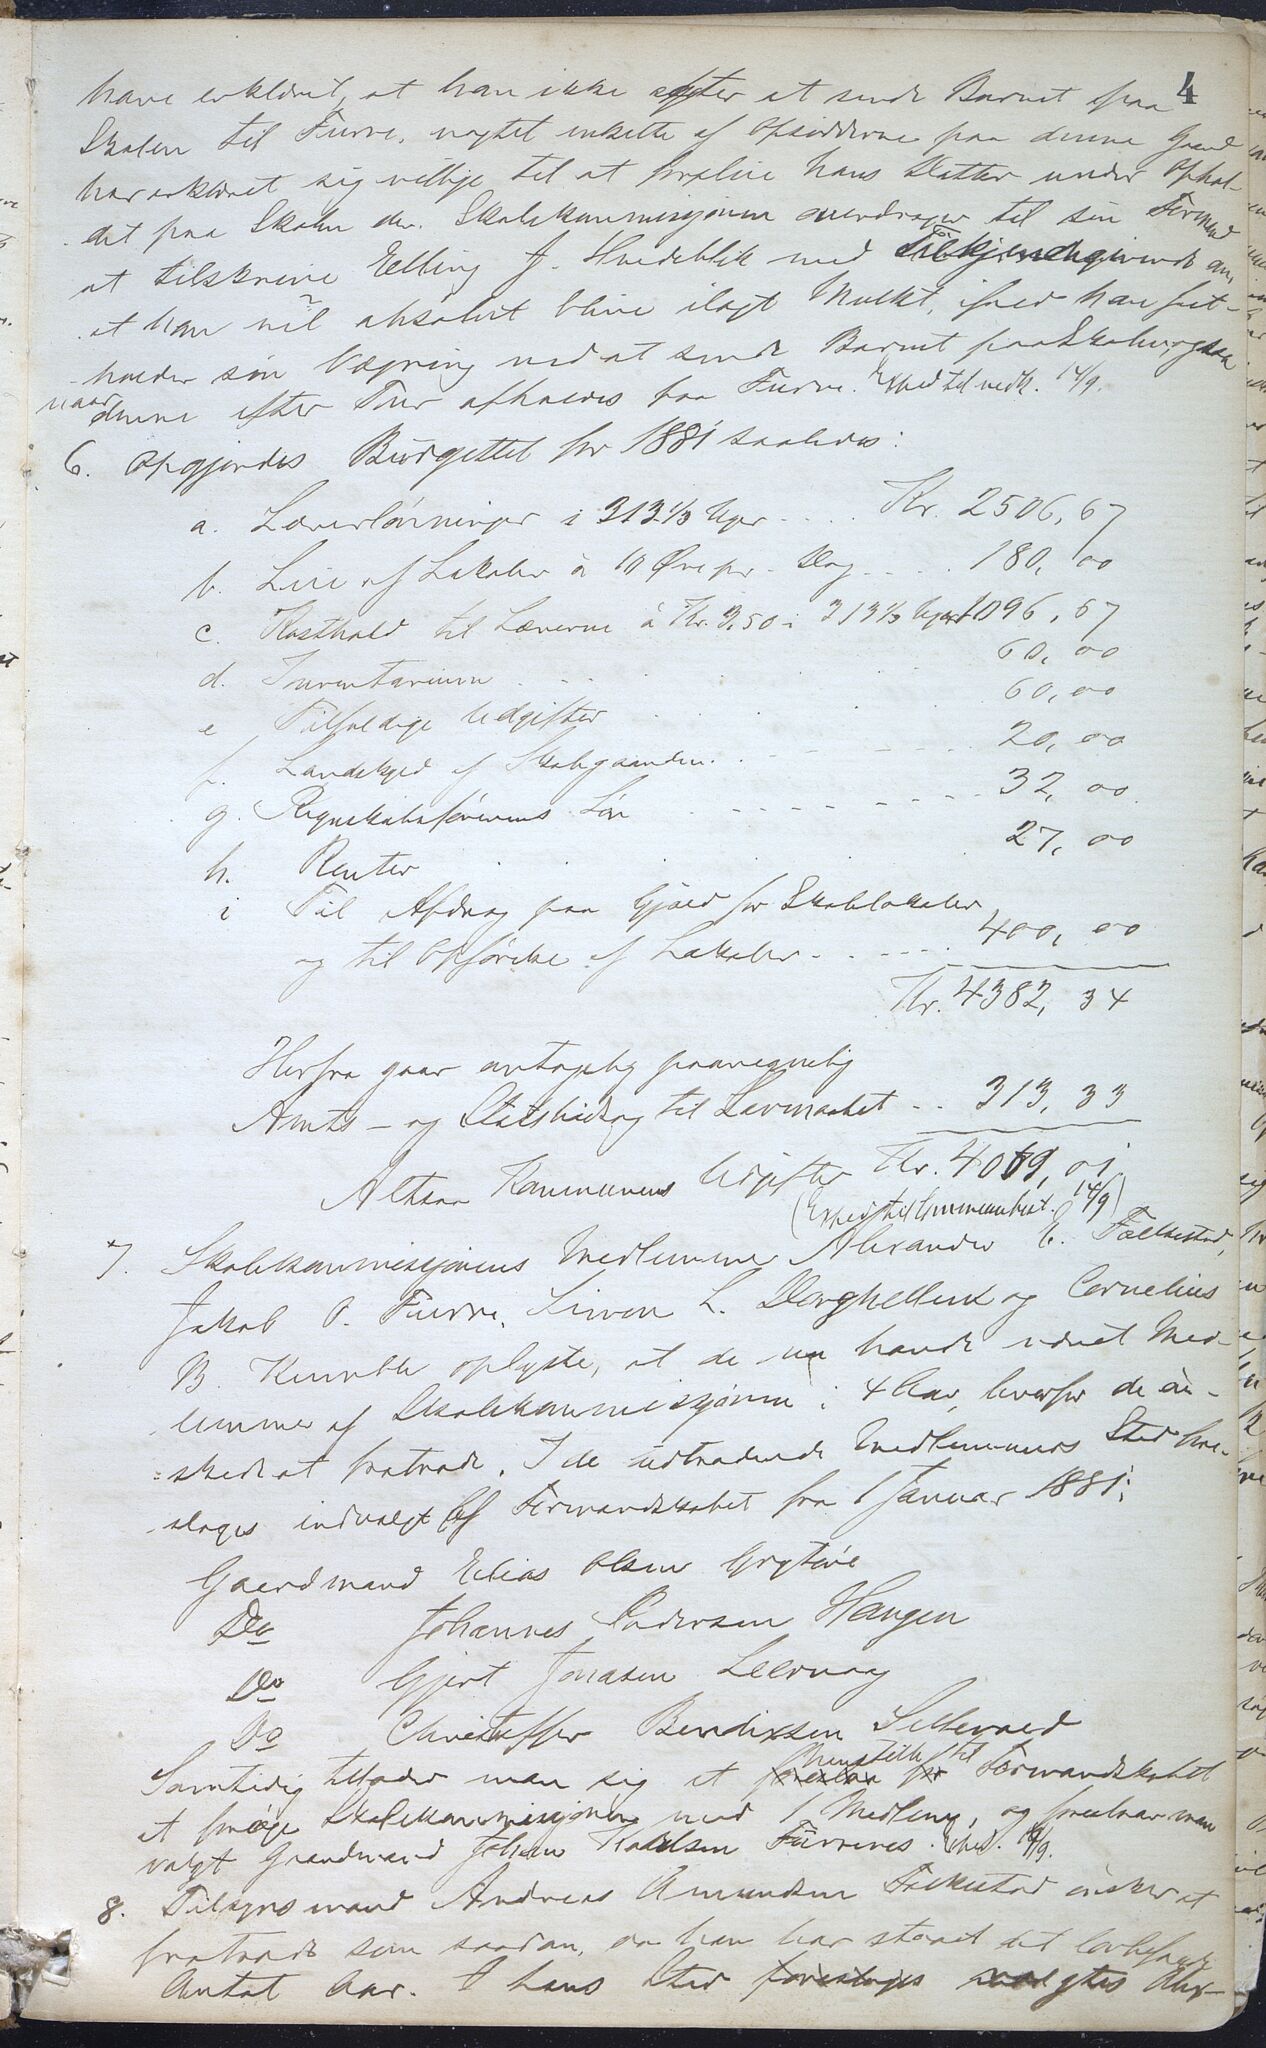 4
have erklæret, at han ikke agter at sende Barnet paa
Skolen til Furre, uagtet enkelte af Opsidderne paa denne Gaard
har erklæret sig villige til at forpleie hans Datter under Ophol-
det paa Skolen der. Skolekommissjonen overdrager til sin Formand
at tilskrive Elling J. Hvedeblik med Tilkjendegivende om,
at han vil absolut blive ilagt Mulkt, ifald han fast-
holder sin Vægring ved at sende Barnet paa Skolen, ogsaa
naar denne efter Tour afholdes paa Furre. Exped til vedk. 14/9.
6. Opgjordes Budgettet for 1881 saaledes:
a. Lærerlønninger i 313 1/3 Uger .... Kr. 2506, 67
b. Leie af Lokaler à 10 Øre pr. Dag .... 180, 00
c. Kosthold til Lærerne à Kr. 3,50 i 313 1/3 Uger 1096, 67
d. Inventarium ... 60, 00
e Tilfældige Udgifter ... 60, 00
f. Landskyld af Skolegaarden ... 20, 00
g. Regnskabsførerens Løn ... 32, 00
h. Renter 27, 00
i Til Afdrag paa Gjæld for Skolelokaler
og til Opførelse af Lokaler .... 400, 00
Kr. 4382, 34
Herfra gaar antagelig paaregnelig
Amts- og Statsbidrag til Lærerne .. 313, 33
Altsaa Kommunens Udgifter Kr. 4069, 01
(Exped til Kommunebest. 14/9)
7. Skolekommissjonens Medlemmer Alexander E. Falkestad,
Jakob O. Furre, Simon L. Dorghella og Cornelius
B. oplyste, at de nu havde været Med-
lemmer af Skolekommissjonen i 4 Aar, hvorfor de øn-
skede at fratræde. I de udtrædende Medlemmers Sted fore-
slages indvalgt af Formandskabet fra 1 Januar 1881:
Gaardmand Elias Olsen Grytøre
Do Johannes Pedersen Haugen
Do Gjert Jonasen Leervaag
Do Christoffer Bendixsen Sellevold
Samtidig tillader man sig at foreslaa for henstille til Formandskabet
at forøge Skolekommissjonen med 1 Medlem, og foreslaar man
valgt Gaardmand Johan Furrenes. Exped. 14/9.
8. Tilsynsmand Andreas Amundsen Falkestad ønsker at
fratræde som saadan, da han har staaet det lovbefalede
Antal Aar. I hans Sted foreslages valgtes Alex-